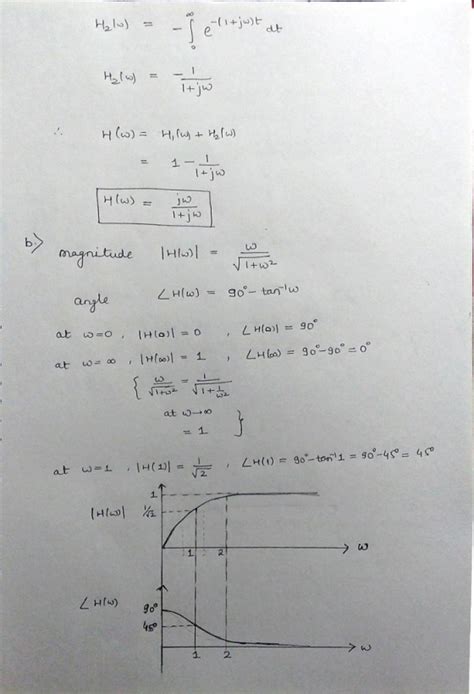 H₂(ω) = - ∫₀^∞ e^-(1+jω)t dt
H₂(ω) = - 1/(1+jω)
∴ H(ω) = H₁(ω) + H₂(ω)
= 1 - 1/(1+jω)
H(ω) = jω/(1+jω)
b.> magnitude |H(ω)| = ω/√(1+ω²)
angle ∠H(ω) = 90° - tan⁻¹ω
at ω=0, |H(0)| = 0 , ∠H(0) = 90°
at ω=∞, |H(∞)| = 1 , ∠H(∞) = 90°-90° = 0°
{ ω/√(1+ω²) = 1/√(1+1/ω²)
at ω→∞
= 1 }
at ω=1 , |H(1)| = 1/√2 , ∠H(1) = 90°-tan⁻¹1 = 90°-45° = 45°
1
|H(ω)| 1/√2
1 2 ω
∠H(ω) 90°
45°
1 2 ω